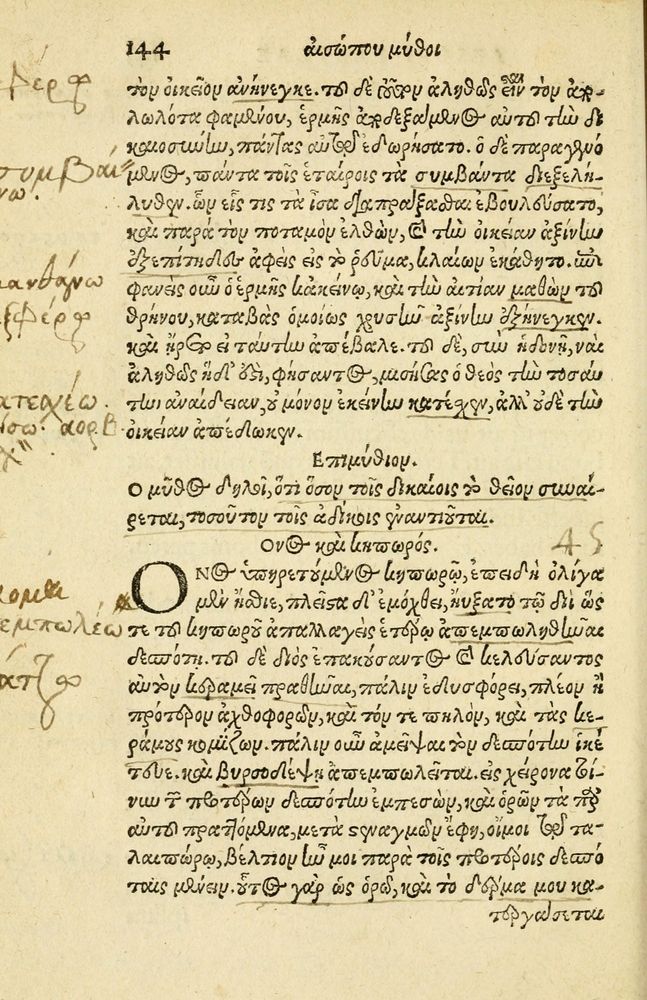 144 αἰσώπου μῦθοι
τὸν οἰκεῖον ἀνήνεγκε. τοῦ δὲ τοῦτον ἀληθῶς εἶναι τὸν ἀπο-
λωλότα φαμένου, ἑρμῆς ἀποδεξάμενος αὐτοῦ τὴν δι
καιοσύνην, πάντας αὐτῷ ἐδωρήσατο. ὁ δὲ παραγενό
μενος, πάντα τοῖς ἑταίροις τὰ συμβάντα διεξελή-
λυθεν. ὧν εἷς τις τὰ ἶσα διαπράξασθαι ἐβουλεύσατο,
καὶ παρὰ τὸν ποταμὸν ἐλθὼν, καὶ τὴν οἰκείαν ἀξίνην
ἐξεπίτηδες ἀφεὶς εἰς τὸ ῥεῦμα, κλαίων ἐκάθητο. ἐπι
φανεὶς οὖν ὁ ἑρμῆς κἀκείνῳ, καὶ τὴν αἰτίαν μαθὼν τοῦ
θρήνου, καταβὰς ὁμοίως χρυσῆν ἀξίνην ἐξήνεγκεν.
καὶ ἤρετο εἰ ταύτην ἀπέβαλε. τοῦ δὲ, σὺν ἡδονῇ, ναὶ
ἀληθῶς ἥδ' ἐστὶ, φήσαντος, μισήσας ὁ θεὸς τὴν τοσαύ
την ἀναίδειαν, οὐ μόνον ἐκείνην κατέχεν, ἀλλ' οὐδὲ τὴν
οἰκείαν ἀπέδωκεν.
Επιμύθιον.
Ο μῦθος δηλοῖ, ὅτι ὅσον τοῖς δικαίοις τὸ θεῖον συναί-
ρεται, τοσοῦτον τοῖς ἀδίκοις ἐναντιοῦται.
Ονος καὶ κηπωρός. 45
ΟΝος ὑπηρετούμενος κηπωρῷ, ἐπειδὴ ὀλίγα
μὲν ἤσθιε, πλεῖστα δ' ἐμόχθει, ηὔξατο τῷ διὶ ὥς
τε τοῦ κηπωροῦ ἀπαλλαγεὶς ἑτέρῳ ἀπεμποληθῆναι
δεσπότῃ. τοῦ δὲ διὸς ἐπακούσαντος καὶ κελεύσαντος
αὐτὸν κεραμεῖ πραθῆναι, πάλιν ἐδυσφόρει, πλέον ἢ
πρότερον ἀχθοφορῶν, καὶ τόν τε πηλὸν, καὶ τὰς κε-
ράμους κομίζων. πάλιν οὖν ἀμεῖψαι τὸν δεσπότην ἱκέ
τευε. καὶ βυρσοδέψῃ ἀπεμπωλεῖται. εἰς χείρονα τοί-
νυν τῶν προτέρων δεσπότην ἐμπεσὼν, καὶ ὁρῶν τὰ παρ'
αὐτοῦ πραττόμενα, μετὰ στεναγμῶν ἔφη, οἴμοι τῷ τα-
λαιπώρῳ, βέλτιον ἦν μοι παρὰ τοῖς προτέροις δεσπό
ταις μένειν. οὗτος γὰρ ὡς ὁρῶ, καὶ τὸ δέρμα μου κα-
τεργάσεται